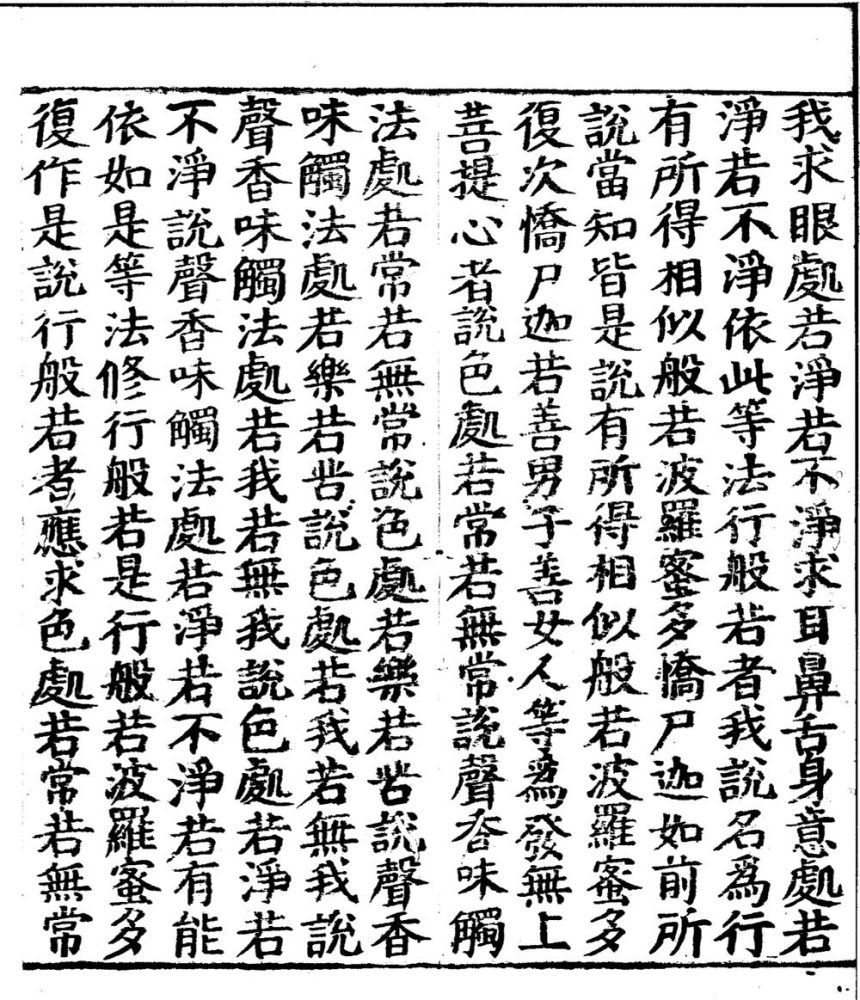 我求眼處若淨若不淨求耳鼻舌身意處若
淨若不淨依此等法行般若者我說名為行
有所得相似般若波羅蜜多憍尸迦如前所
說當知皆是說有所得相似般若波羅蜜多
復次憍尸迦若善男子善女人等為發無上
菩提心者說色處若常若無常說聲香味觸
法處若常若無常說色處若樂若苦說聲香
味觸法處若樂若苦說色處若我若無我說
聲香味觸法處若我若無我說色處若淨若
不淨說聲香味觸法處若淨若不淨若有能
依如是等法修行般若是行般若波羅蜜多
復作是說行般若者應求色處若常若無常